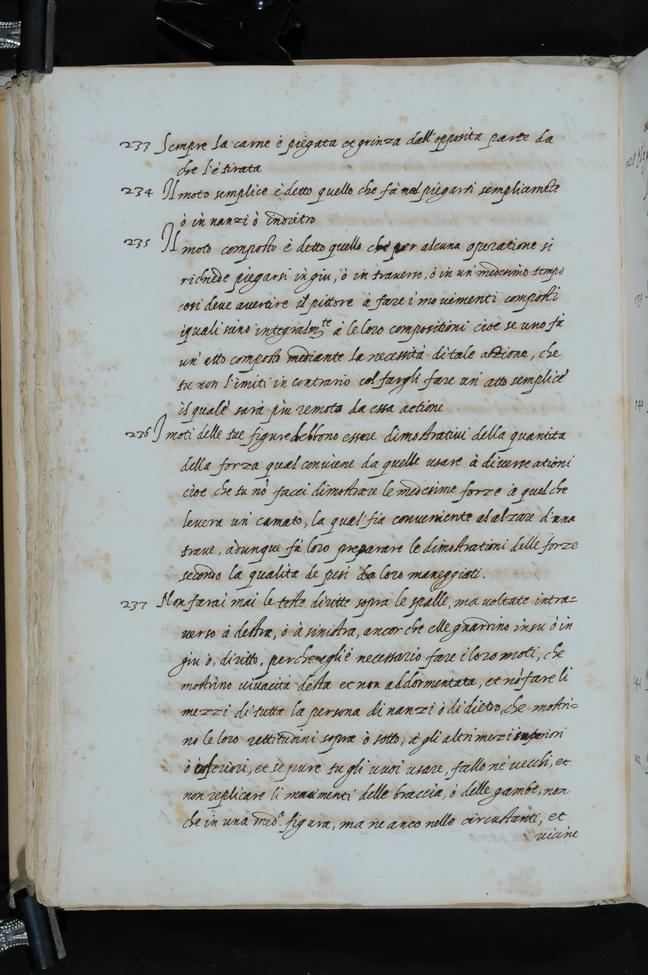 233 Sempre la carne è piegata et grinza dall'opposita parte da
che l'è tirata
234 Il moto semplice è detto quello che fà nel piegarsi semplicemēte
ò in nanzi ò indietro
235 Il moto composto è detto quello che per alcuna operatione si
richiede piegarsi in giu, ò in traverso, ò in un medesimo tempo
cosi deve avertire il pittore à fare i movementi composti
iquali sono integralm.te a le loro compositioni cioe se uno fà
un' atto composto mediante la necessità di tale attione, che
tu non l'imiti in contrario col fargli fare un' atto semplice
il quale sarà piu remoto da essa actione
236 I moti delle tue figure debbono essere dimostrativi della quantita
della forza qual conviene da quelle usare à diverse ationi
cioe che tu nō facci dimostrare le medesime forze à quel che
levera un' camato, la qual' fia conveniente al alzare d'una
trave, adunque fà loro preparare le dimostrationi delle forze
secōdo la qualità de pesi da loro maneggiati.
237 Non farai mai le teste diritte sopra le spalle, ma voltate intra=
verso à destra, ò à sinistra, ancor che elle guardino in su ò in
giu ò, diritto, perche egli è necessario fare i loro moti, che
mostrino vivacità desta et non addormentata, et nō fare li
mezzi di tutta la persona dinanzi ò di dietro, che mostri=
no le loro rettitudini sopra ò sotto, à gli altri mezi superiori
ò inferiori, et se pure tu gli vuoi usare, fallo né vecchi, et
non replicare li movimenti delle braccia, ò delle gambe, non
che in una med.a figura, ma ne anco nelle circustanti, et
vicine